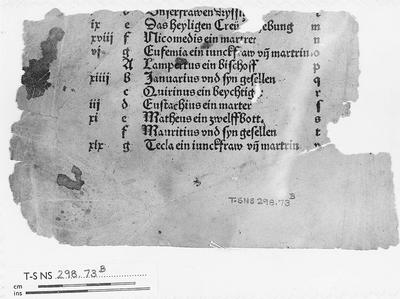 ix e Das heyligen Creü ebung m
xviij f Nicomedis ein martrer n
vj g Eufemia ein iunckfraw vn̄ martrin o
A Lampertus ein bischoff p
xiiij b Januarius vnd syn gesellen q
c Quirinus ein beychtig r
iij d Eustachius ein marter ſ
xi e Matheus ein zwelffbott s
f Mauritius vnd syn gesellen t
xix g Tecla ein iunckfraw vn̄ martrin v
T-S NS 298.73ᴮ
T-S NS 298.73ᴮ
cm
ins